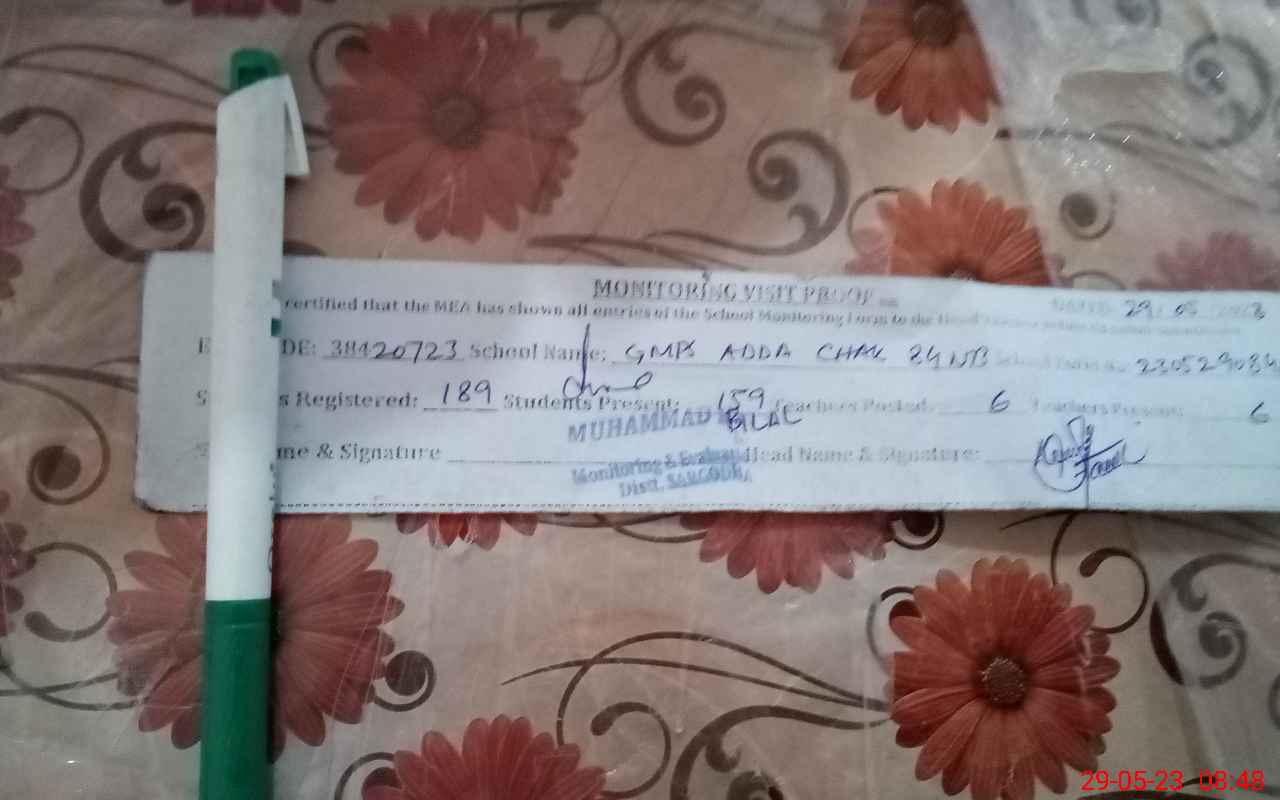 MONITORING VISIT PROOF
DATE: 29/05/2023
certified that the MEA has shown all entries of the School Monitoring Form to the Head
DE: 38420723 School Name: GMPS ADDA CHAK 84 NB
s Registered: 189 Students Present: 159 Teachers Posted: 6 Teachers Present: 6
MUHAMMAD BILAL
me & Signature Head Name & Signature:
Monitoring &
Distt. SARGODHA
29-05-23 08:48